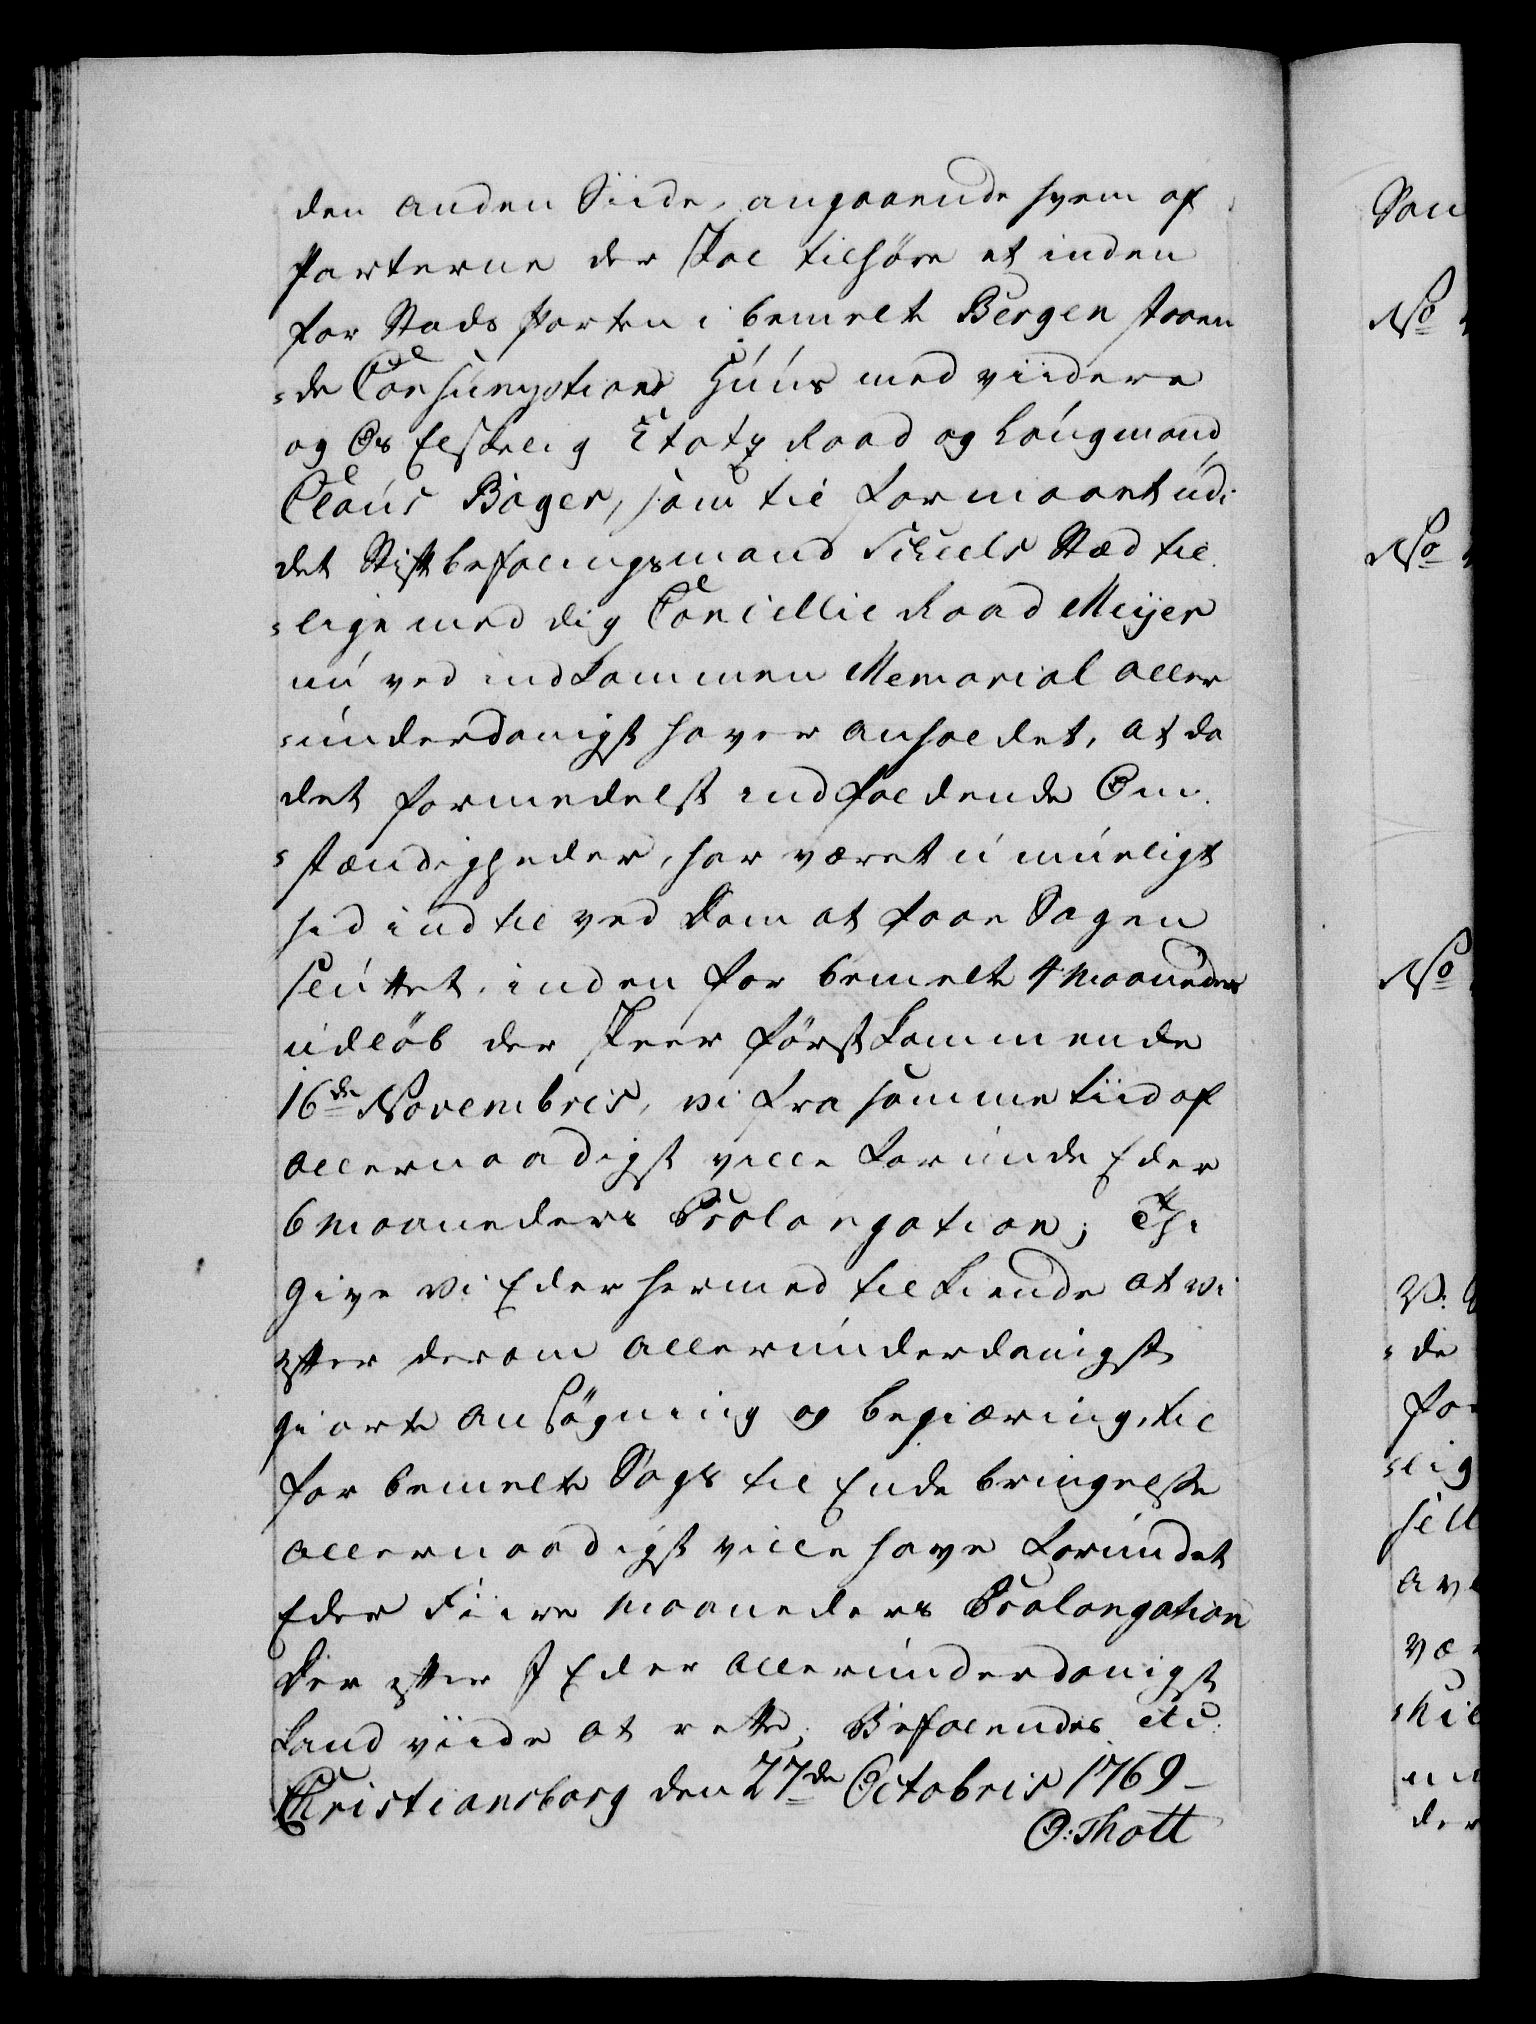 den anden Siide, angaaende hvem af
Parterne der skal tilhöre et inden
for Stads Porten i bemelte Bergen staaen
=de Consumptions Huus med viidere
og Os Elskelig Etatz Raad og Laugmand
Claus Bager, som til Formand udi
det Stiftbefalingsmand Scheels Stæd til
=lige med dig Cancellie Raad Meijer
nu ved indkommen Memorial aller
=underdanigst haver anholdet, at da
det formedelst indfaldende Om
=stændigheder, har været umueligt
hid indtil ved Dom at faae Sagen
sluttet, inden for bemelte 4 Maaneders
udlöb der skeer förstkommende
16de Novembris, vi fra samme tiid af
allernaadigst ville forunde Eder
6 Maaneders Prolongation; Thi
give Vi Eder hermed tilkiende at vi
efter derom allerunderdanigst
giorte Ansögning og begiæring, til
for bemelte Sags til Ende bringelse
allernaadigst ville have forundet
Eder Fiire Maaneders Prolongation
Der efter I Eder allerunderdanigst
kand viide at rette; Befalendes etc:
Christiansborg den 27de Octobris 1769 -
O: Thott
Sam
No
No
No
V:
=de
for
=lig
sell
av
væ
der